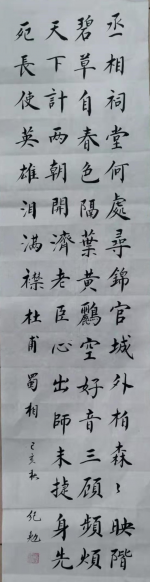 丞相祠堂何處尋錦官城外柏森〻映階
碧草自春色隔葉黃鸝空好音三顧頻煩
天下計兩朝開濟老臣心出師未捷身先
死長使英雄泪滿襟杜甫蜀相